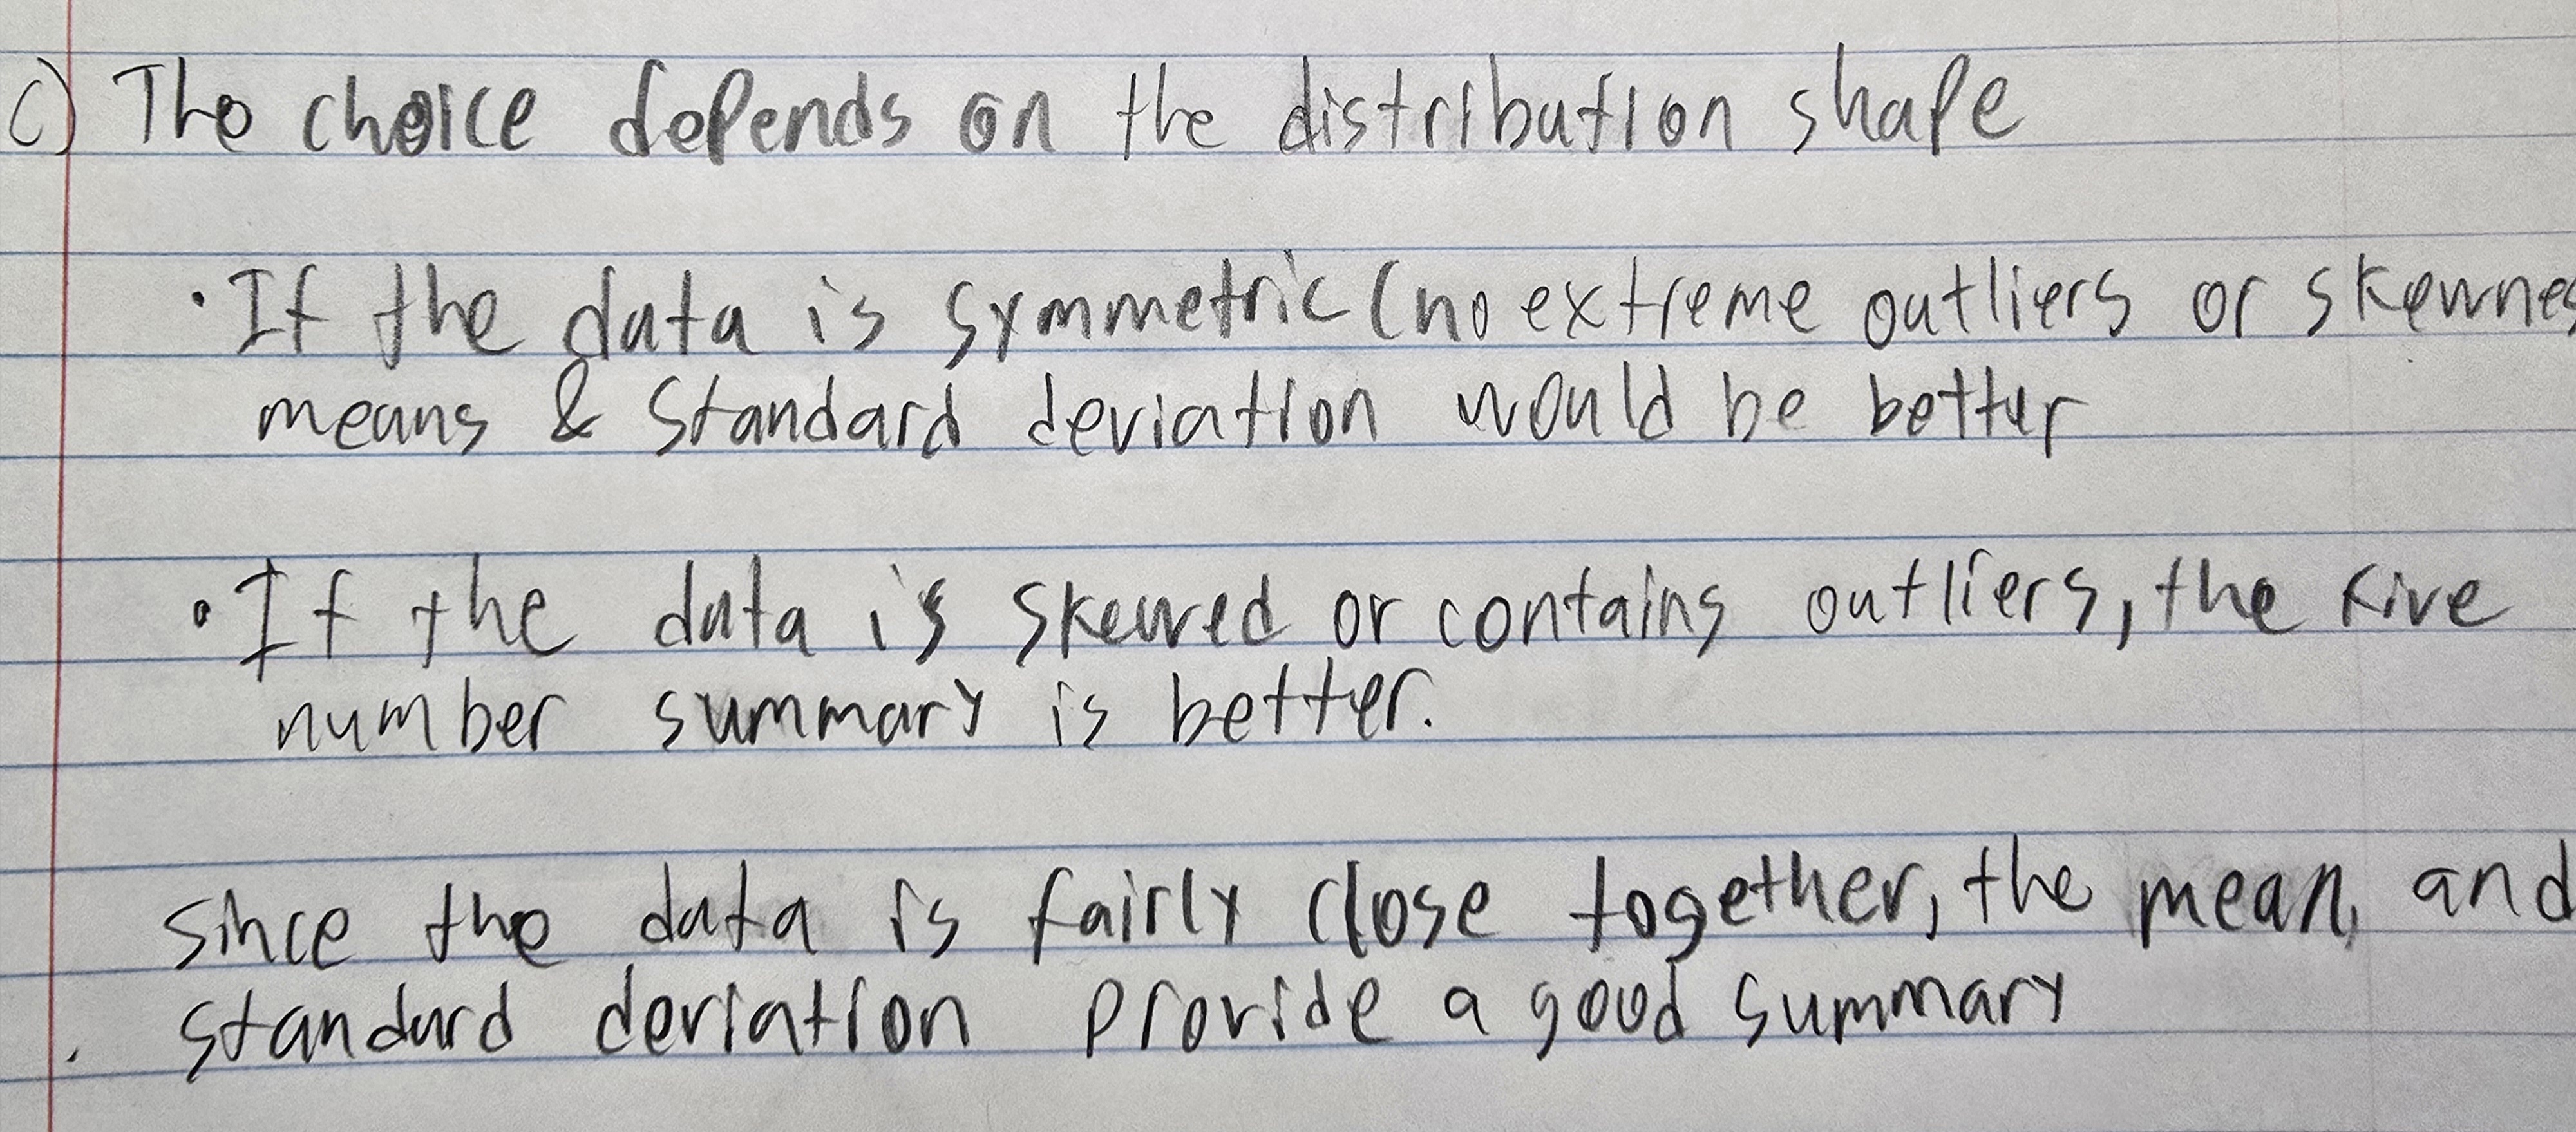 c) The choice depends on the distribution shape
• If the data is symmetric (no extreme outliers or skewnes
means & standard deviation would be better
• If the data is skewed or contains outliers, the five
number summary is better.
since the data is fairly close together, the mean, and
standard deviation provide a good summary